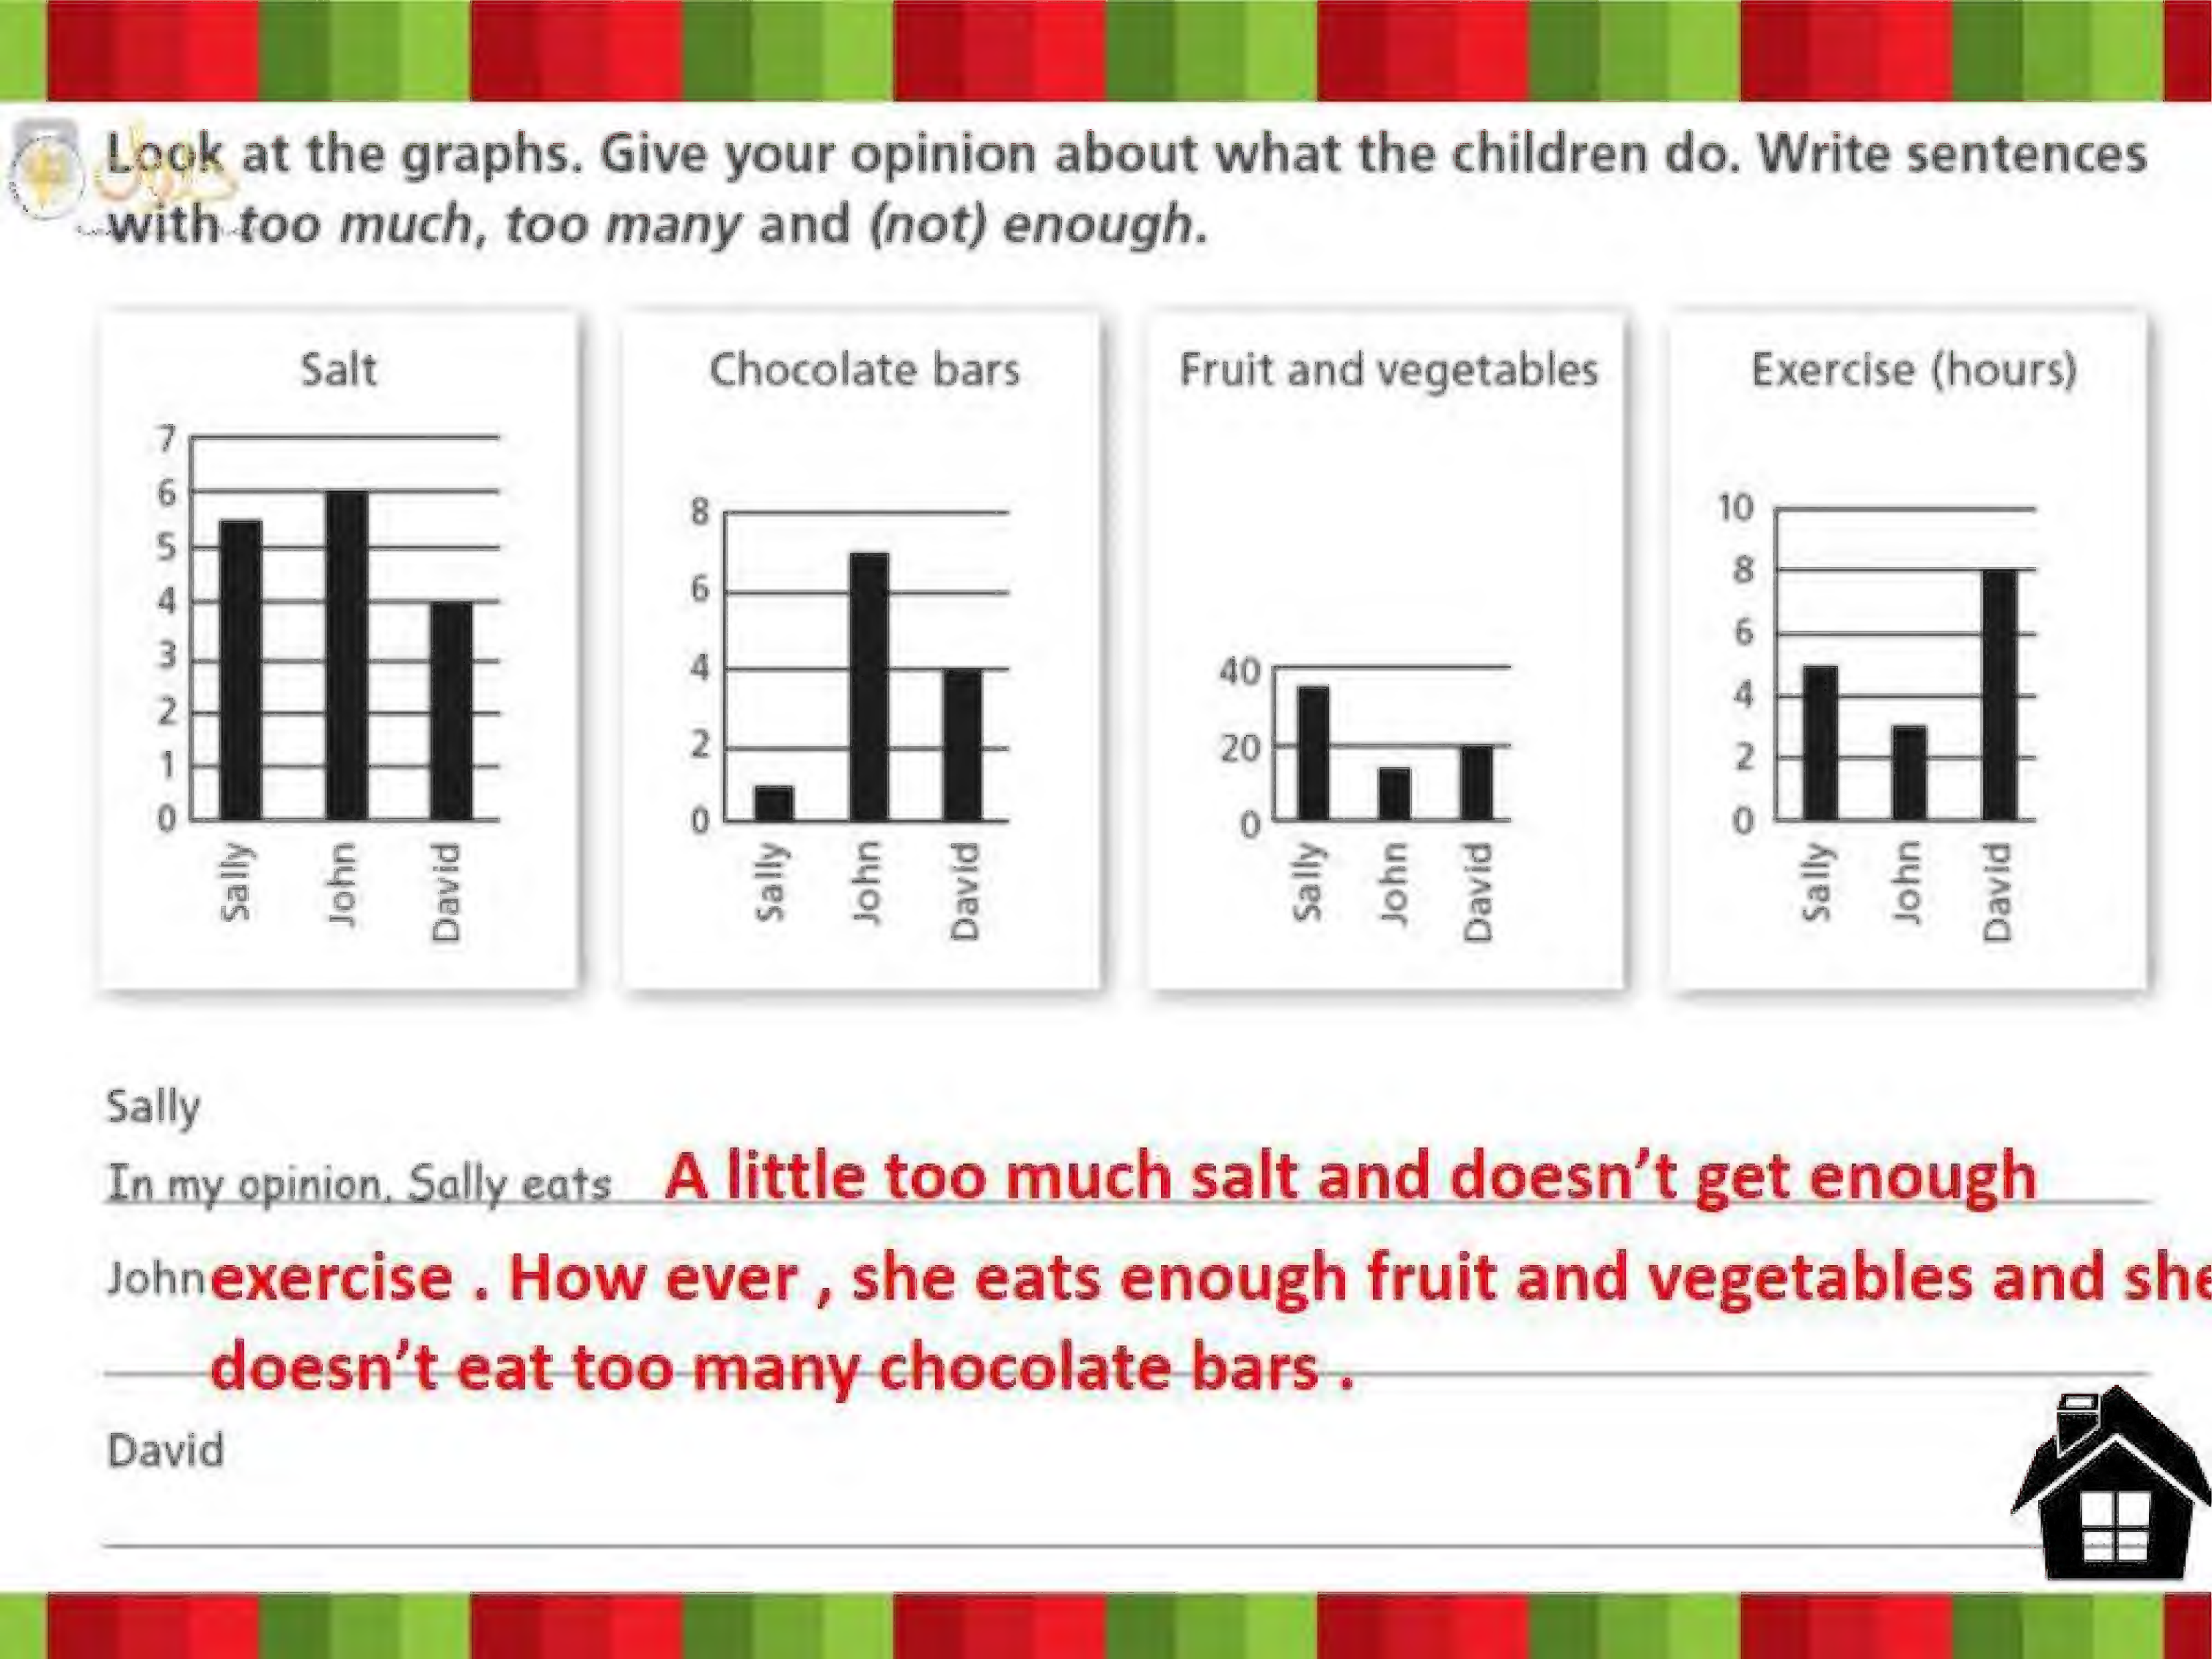 Look at the graphs. Give your opinion about what the children do. Write sentences
with too much, too many and (not) enough.
Salt
7
6
5
4
3
2
1
0
Sally
John
David
Chocolate bars
8
6
4
2
0
Sally
John
David
Fruit and vegetables
40
20
0
Sally
John
David
Exercise (hours)
10
8
6
4
2
0
Sally
John
David
Sally
In my opinion, Sally eats A little too much salt and doesn't get enough
John exercise . How ever , she eats enough fruit and vegetables and she
doesn't eat too many chocolate bars .
David